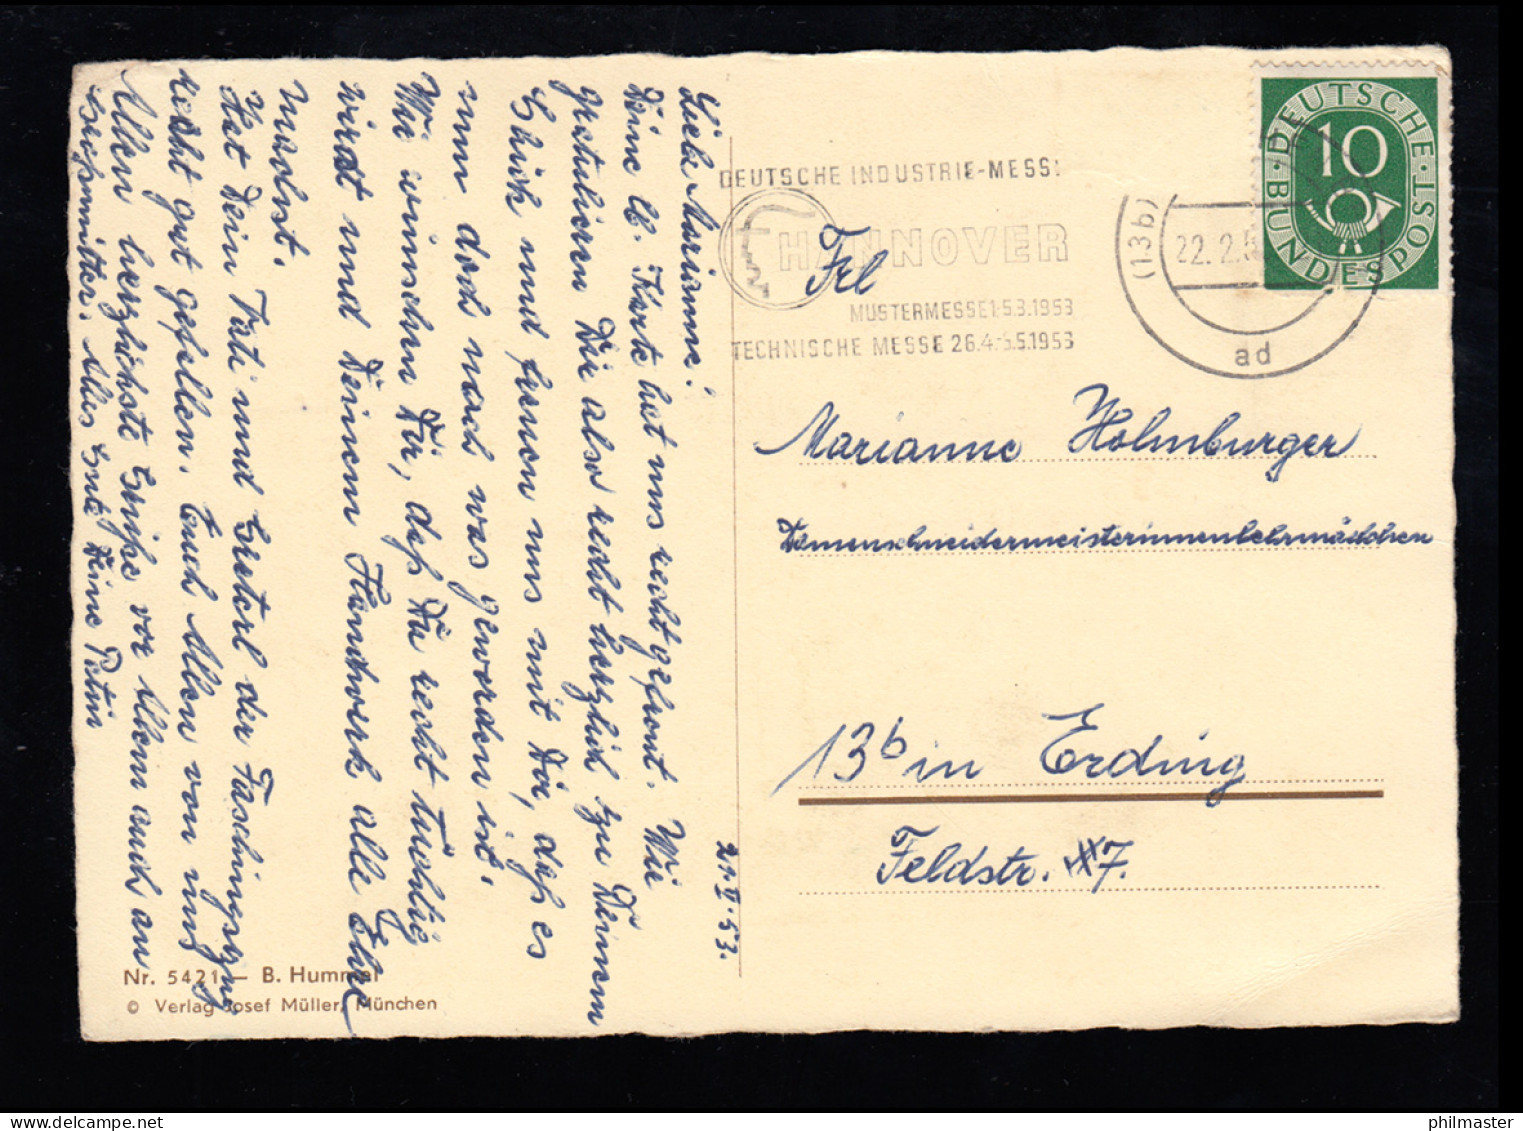 Liebe Marianne!
Deine lb. Karte hat uns recht gefreut. Wir
gratulieren Dir also recht herzlich zu Deinem
Glück und freuen uns mit Dir, daß es
nun doch noch was geworden ist.
Wir wünschen Dir, daß Du recht tüchtig
wirst und Deinem Handwerk alle Ehre
machst.
Hat Dein Vati und Gieterl der Faschingszug
recht gut gefallen. Euch Allen von uns
Allen herzlichste Grüße vor Allem auch an
Großmutter. Alles Gute Deine Patin
21.II.53.
Nr. 5421 – B. Hummel
© Verlag Josef Müller, München
DEUTSCHE INDUSTRIE-MESSE
HANNOVER
MUSTERMESSE 1.-5.3.1953
TECHNISCHE MESSE 26.4.-5.5.1953
(13b)
22.2.5
ad
DEUTSCHE BUNDESPOST
10
Frl
Marianne Holmburger
Damenschneidermeisterinnenlehrmädchen
13b in Erding
Feldstr. 7.
philmaster